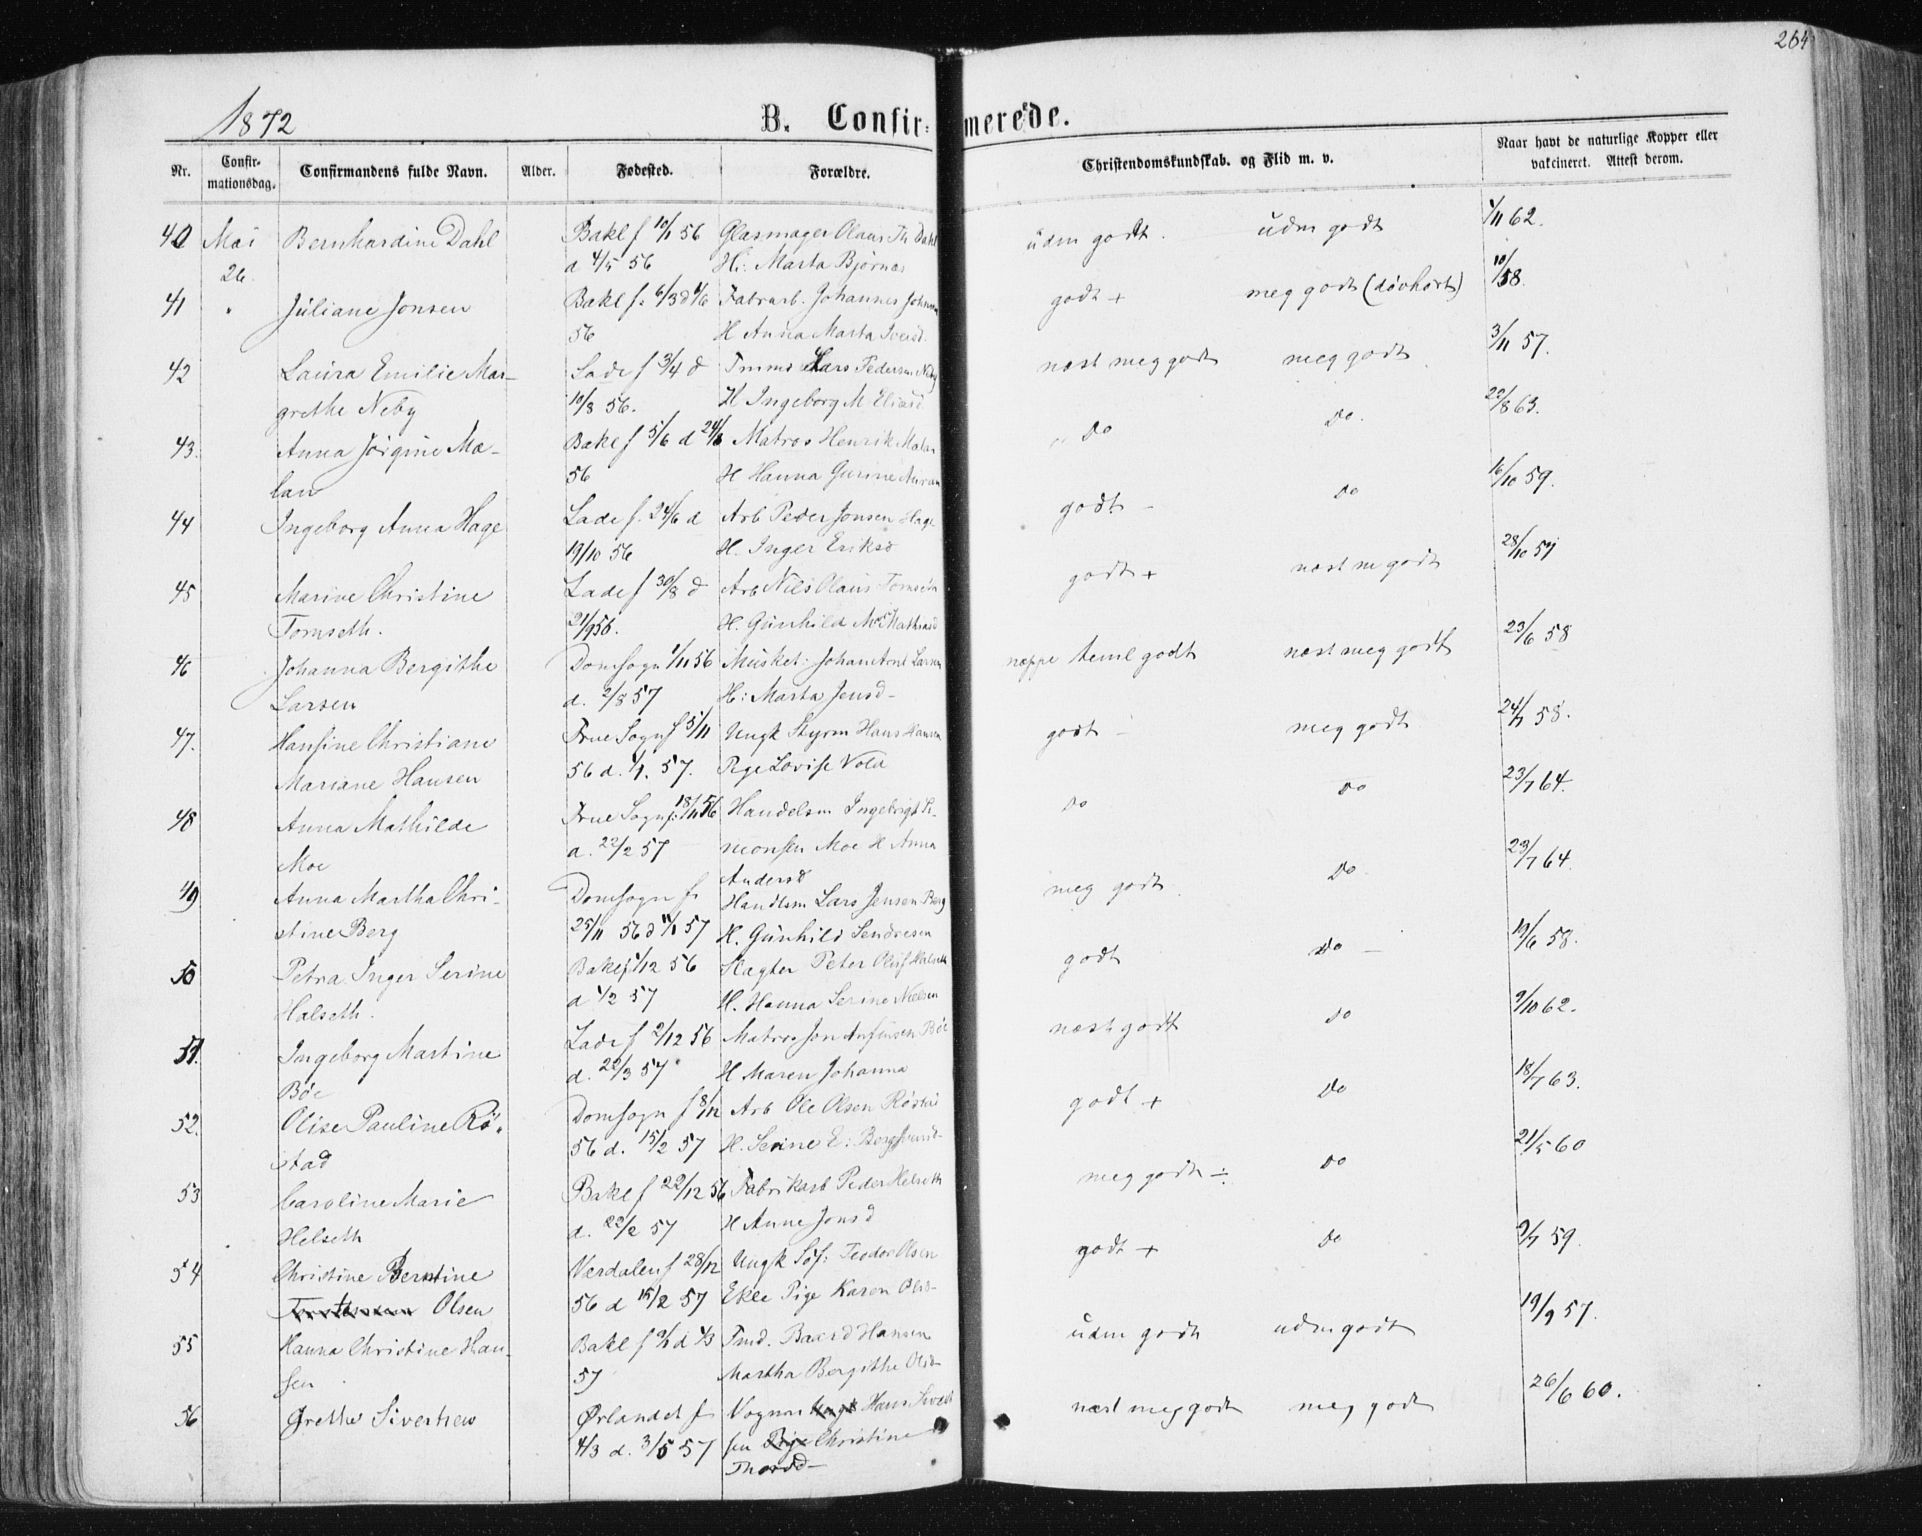 264
1872
B. Confir= merede.
Nr. Confir-mationsdag. Confirmandens fulde Navn. Alder. Fødested. Forældre. Christendomskundskab. og Flid m. v. Naar havt de naturlige Kopper eller vakcineret. Attest derom.
40 Mai Bernhardine Dahl Bakl f 10/1 56 Glasmager Olaus Th Dahl udm godt. udm godt 1/11 62.
26. d 4/5 56 H: Marta Bjørnes
41 " Juliane Jonsen Bakl f. 6/3 d 1/6 Fabrarb. Johannes godt + meg godt (døvhørt) 10/58.
56 H Anna Marta Iversd.
42 Laura Emilie Mar- Lade f 3/4 d Lars Pedersen Neby næst meg godt meg godt 3/11 57.
grethe Neby 10/8 56. H Ingeborg M Eliasd
43. Anna Jørgine Ma- Bakl f 5/6 d 24/8 Matros Henrik Malan " Do Do. 22/8 63.
lan 56 H Hanna Gurine
44 Ingeborg Anna Hage Lade f. 24/6 d Arb Peder Jonsen Hage godt - Do 16/10 59.
19/10 56 H. Inger Eriksd
45 Marine Christine Lade f 30/8 d Arb Nils Olaus Tornseth godt + næst m godt 28/10 57
Tornseth. 21/9 56. H. Gunhild
46 Johanna Bergithe Domsogn 1/11 56 Musket: Johan Arnt Larsen neppe teml godt næst meg godt 23/6 58
Larsen d. 2/8 57 H: Marta Jensd-
47. Hansine Christiane Frue Sogn f 5/11 Ungk Styrm Hans Hansen godt - meg godt 24/7 58.
Mariane Hansen 56 d. 1/1. 57. Pige Lovise Vold
48 Anna Mathilde Frue Sogn f: 18/11 56 Handelsm Ingebrigt Si- Do Do 23/7 64.
Moe d. 22/2 57 monsen Moe H Anna
Andersd
49 Anna Martha Chri- Domsogn f. Handlsm Lars Jensen Berg meg godt. Do. 23/7 64.
stine Berg 25/11 56 d 11/1 57 H. Gunhild Sendresen
50 Petra Inger Serine Bakl f 1/12 56 Slagter Peter Oluf Halseth godt Do - 19/6 58.
Halseth. d 1/2 57 H. Hanna Serine Nielsen
51. Ingeborg Martine Lade f 2/12 56 Matros Jon Anfinsen Böe næst godt Do 9/10 62.
Böe d. 22/3 57 H Maren Johanna
52. Olise Pauline Rö- Domsogn f 8/12 Arb Ole Olsen Röstad godt + Do 18/7 63.
stad 56 d. 15/2 57 H. Serine E:
53 Caroline Marie Bakl f 22/12 56 Fabrikarb Peder Helseth meg godt ÷ Do 21/5 60
Helseth d. 22/2 57 H Anne Jonsd
54 Christine Berntine Verdalen f 28/12 Ungk Söf. Teodor Olsen godt + Do 9/7 59.
Olsen 56 d 15/2 57 Ekle Pige Karen Olsd-
55 Hanna Christine Han- Bakl f 9/1 d 1/3 Tmd. Baard Hansen udm godt udm godt 19/9 57.
sen 57 Martha Bergithe Olsd-
56 Grethe Sivertsen Ørlandet f Vognm Ungk Hans Sivert næst meg godt meg godt 26/6 60.
4/3 d. 3/5 57 sen Pige Christine
Thordd-